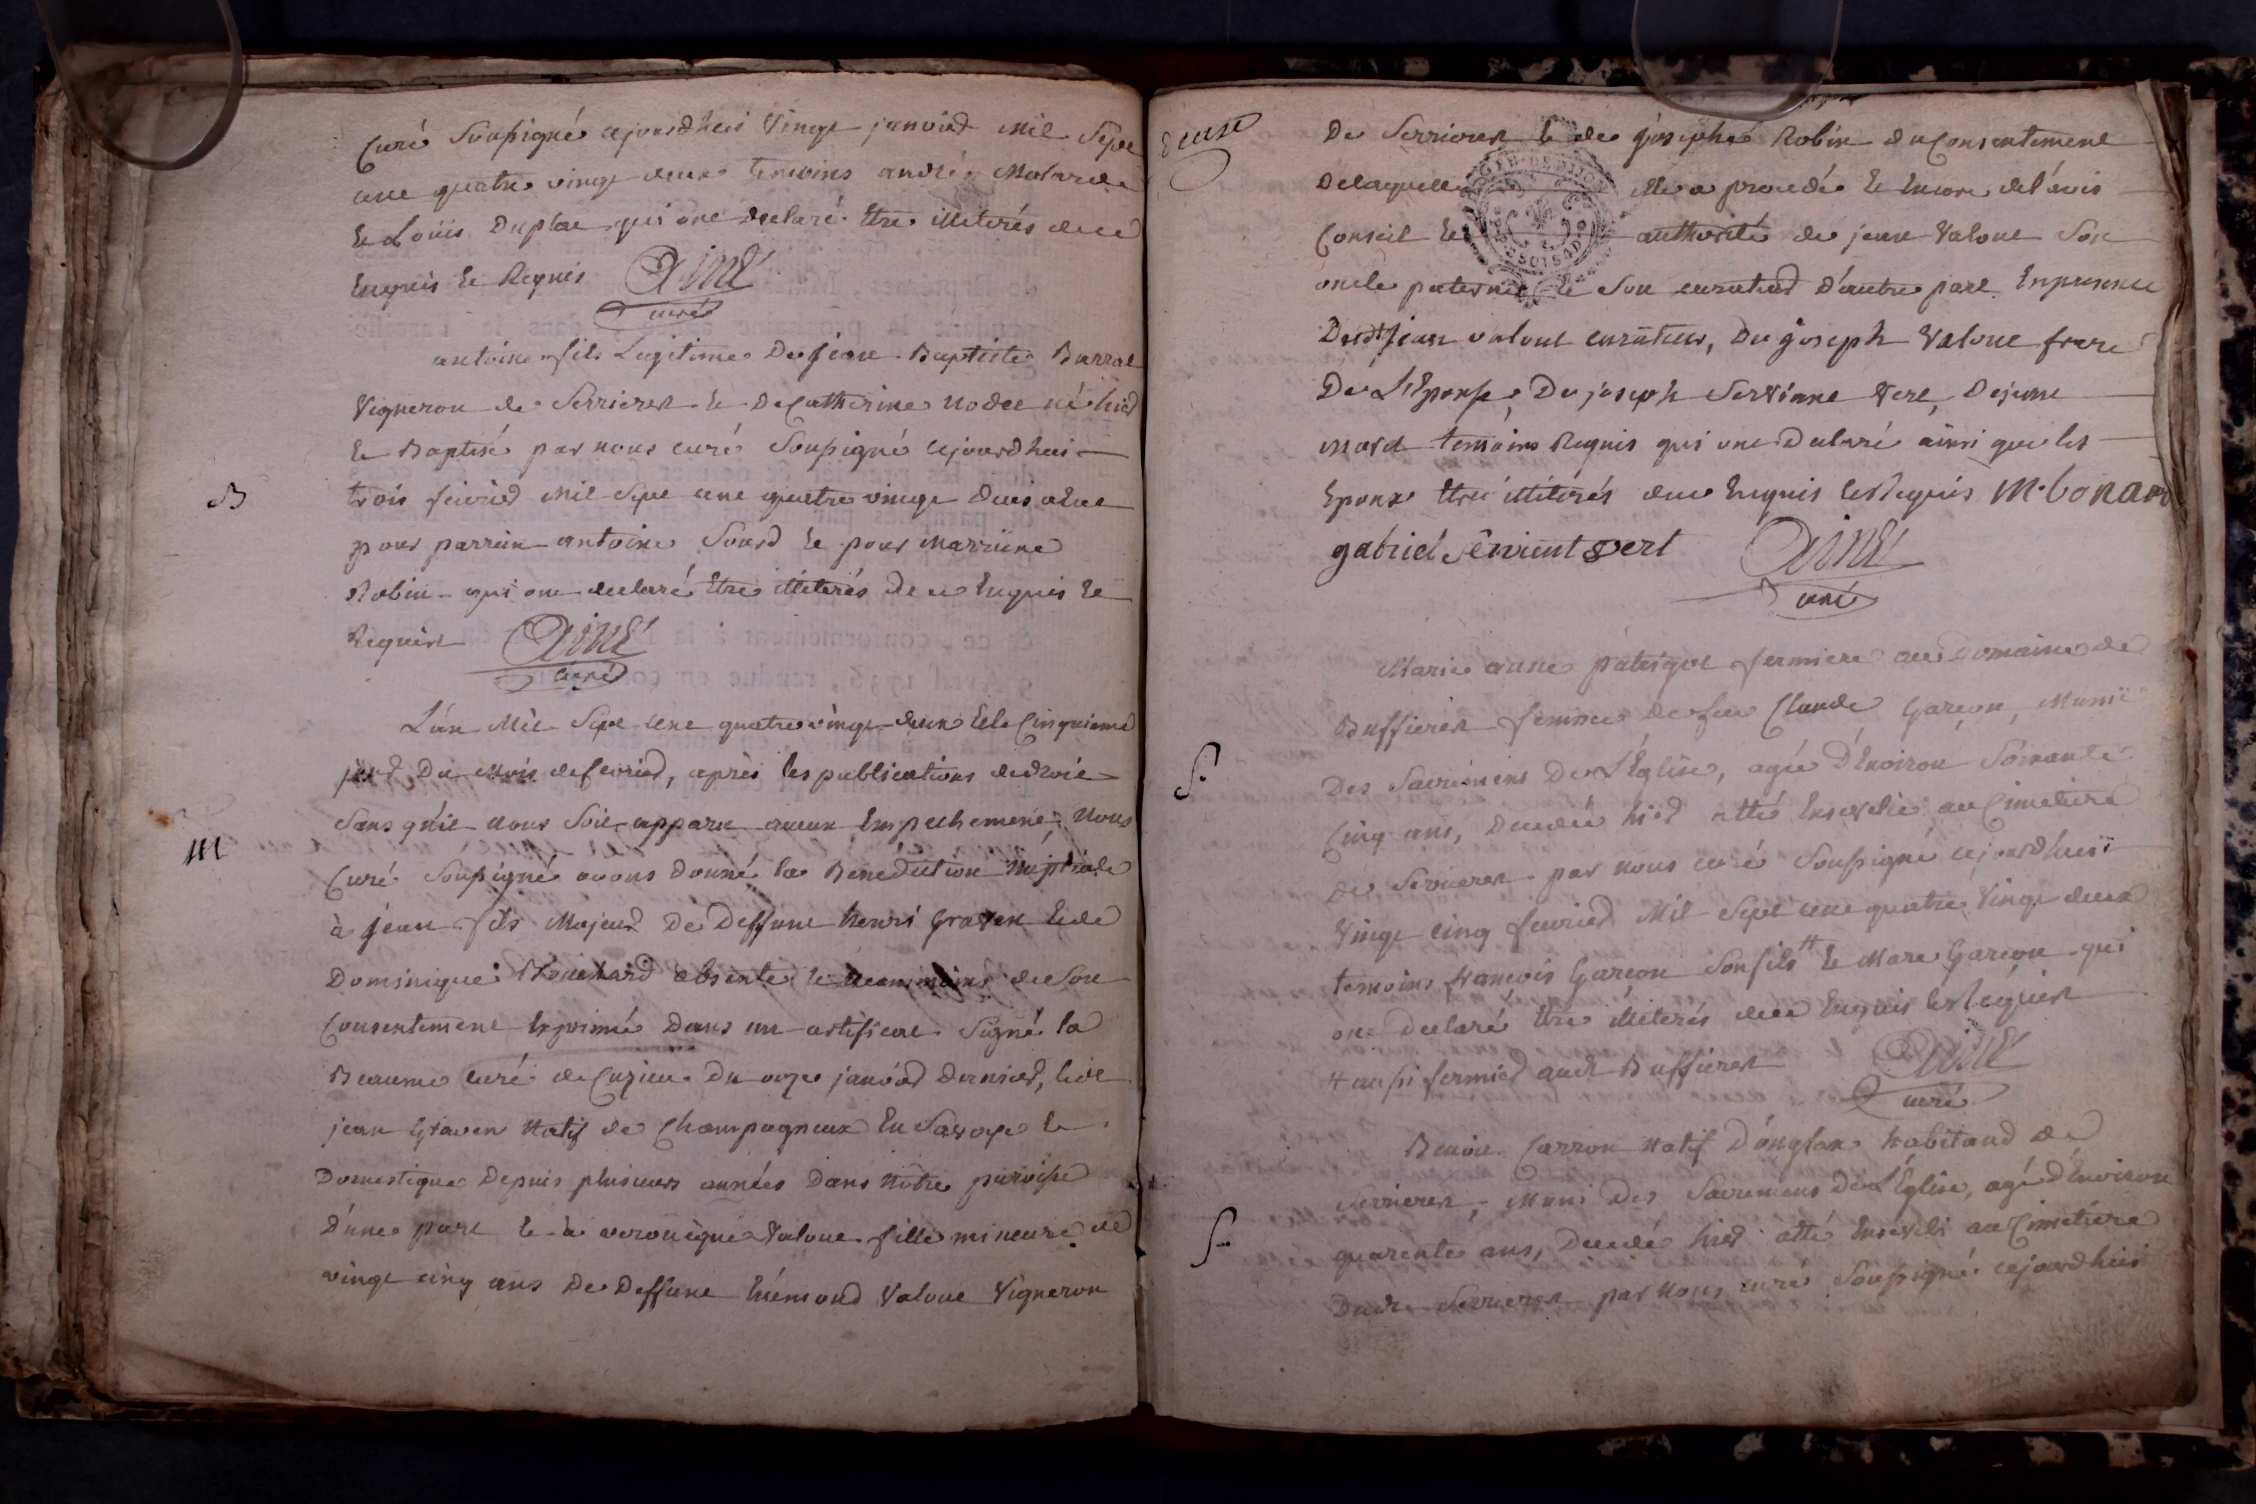 Curé Soussigné cejourdhui Vingt janvier Mil Sept
cent quatre vingt deux temoins andré Molard
et Loüis Duplat qui ont declaré Etre illiterés dece
Enquis et Requis Aimé
curé
antoine fils Legitime De jean Baptiste Burrat
Vigneron de Serrieres et De Catherine né hier
et Baptisé par nous curé Soussigné cejourdhui
B
trois fevrier Mil Sept cent quatre vingt deux a Eut
pour parrein antoine Sourd et pour Marreine
Robin qui ont declaré Etre illiterés De ce Enquis et
Requis Aimé
curé
L'an Mil Sept cent quatre vingt deux et le Cinquieme
jour Du Mois de fevrier, après les publications de droit
Sans qu'il nous Soit apparu aucun Empechement, Nous
M
Curé Soussigné avons donné la Benediction Nuptiale
à jean fils Majeur De Deffunt henri Graven et de
Dominique absente et neanmoins de Son
Consentement Exprimé Dans un certificat Signé la
Beaume curé de Cuzieu Du onze janvier Dernier, led
jean Graven Natif de Champagneux En Savoye et
Domestique Depuis plusieurs années Dans Notre paroisse
D'une part et à veronique Valout fille mineure de
vingt cinq ans De Deffunt Eniemond Valout Vigneron
deuse
De Serrieres et de josephe Robin du Consentement
De laquelle elle a procedée et Encore de l'avis
Conseil et authorité de jean Valout Son
oncle paternel et Son curateur d'autre part En presence
Dudt jean valout curateur, Du joseph Valout frere
De L'Epouse, De joseph Vert, De jeune
temoins Requis qui ont Declaré ainsi que les
Epoux Etre illiterés dece Enquis et Requis M. bonard
gabriel servient vert Aimé
curé
Marie anne fermiere au Domaine de
Buffieres femme de feu Claude Garçon, Munie
S.
Des Sacremens De L'Eglise, agée D'Environ Soixante
Cinq ans, Decedée hier a etté Ensevelie au Cimetiere
de Serrieres par nous curé Soussigné cejourdhui
Vingt cinq fevrier Mil Sept cent quatre Vingt deux
temoins francois Garçon Son fils # et Marc Garçon qui
ont Declaré Etre illiterés dece Enquis et Requis
# aussi fermier audt Buffieres Aimé
curé
Benoit Carron Natif D'onglas habitand de
Serrieres, Muni Des Sacremens De L'Eglise, agé D'Environ
S.
quarente ans, Decedé hier a etté Enseveli au Cimetiere
Dudt Serrieres par Nous curé Soussigné cejourdhui